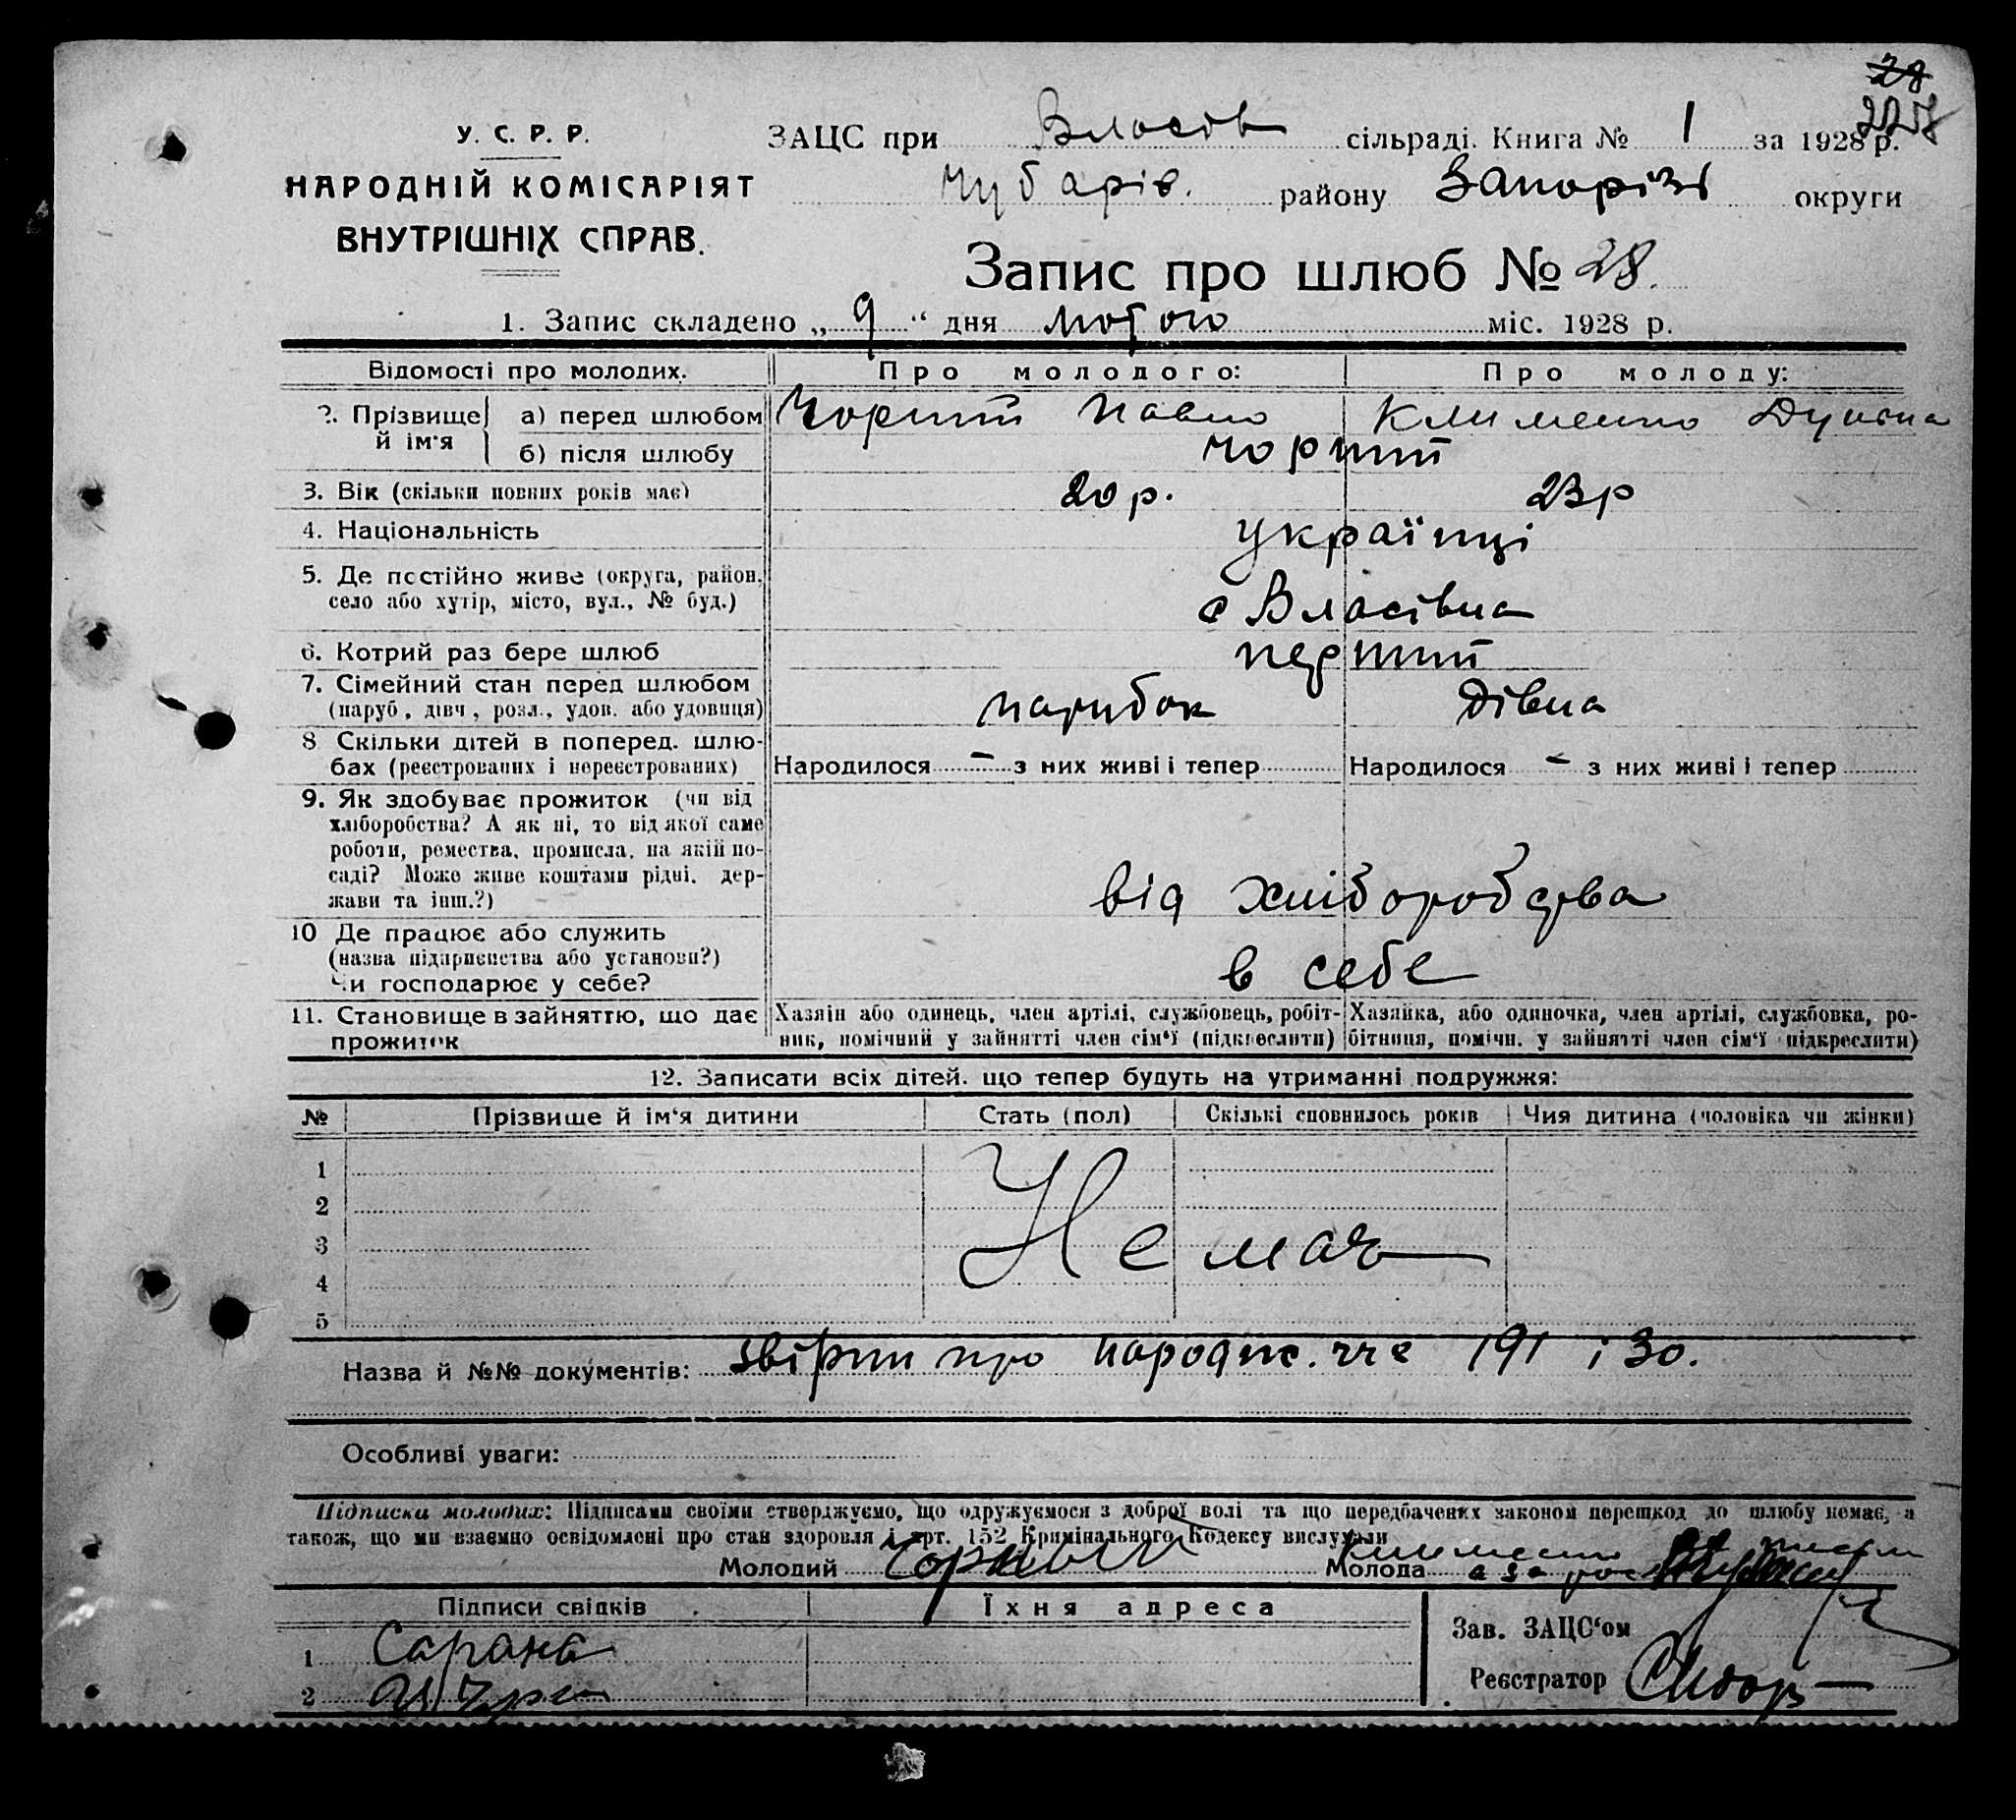 28
У. С. Р. Р.
НАРОДНІЙ КОМІСАРІЯТ
ВНУТРІШНІХ СПРАВ.
ЗАЦС при Власів сільраді. Книга № 1 за 1928 р.
Чубарів. району Запорізі округи
Запис про шлюб № 28.
1. Запис складено „ 9 “ дня лютого міс. 1928 р.
Відомості про молодих. Про молодого: Про молоду:
2. Прізвище й ім'я а) перед шлюбом Чорний Павло Клименко
б) після шлюбу Чорний
3. Вік (скільки повних років має) 20 р. 23 р
4. Національність українці
5. Де постійно живе (округа, район, село або хутір, місто, вул., № буд.) с Власівка
6. Котрий раз бере шлюб перший
7. Сімейний стан перед шлюбом (паруб, дівч, розл., удов. або удовиця) парубок дівка
8 Скільки дітей в поперед. шлю-
бах (реєстрованих і нереєстрованих) Народилося – з них живі і тепер Народилося – з них живі і тепер
9. Як здобуває прожиток (чи від
хліборобства? А як ні, то від якої саме
роботи, ремества, промисла, на якій по-
саді? Може живе коштами рідні, дер-
жави та інш.?) від хліборобства
10 Де працює або служить
(назва підприємства або установи?)
Чи господарює у себе? в себе
11. Становище в зайняттю, що дає прожиток
Хазяїн або одинець, член артілі, службовець, робіт-
ник, помічний у зайнятті член сім'ї (підкреслити)
Хазяйка, або одиночка, член артілі, службовка, ро-
бітниця, помічн. у зайнятті член сім'ї підкреслити)
12. Записати всіх дітей. що тепер будуть на утриманні подружжя:
№ Прізвище й ім'я дитини Стать (пол) Скількі сповнилось років Чия дитина (чоловіка чи жінки)
1
2
3 Немає
4
5
Назва й №№ документів: звірки про народже. 191 і 30.
Особливі уваги:
Підписки молодих: Підписами своїми стверджуємо, що одружуємося з доброї волі та що передбачених законом перешкод до шлюбу немає, а
також, що ми взаємно освідомлені про стан здоровля і арт. 152 Кримінального Кодексу вислухали
Молодий Чорный Молода Клименко
Підписи свідків Їхня адреса
Зав. ЗАЦС'ом
1 Сарана
Реєстратор
2